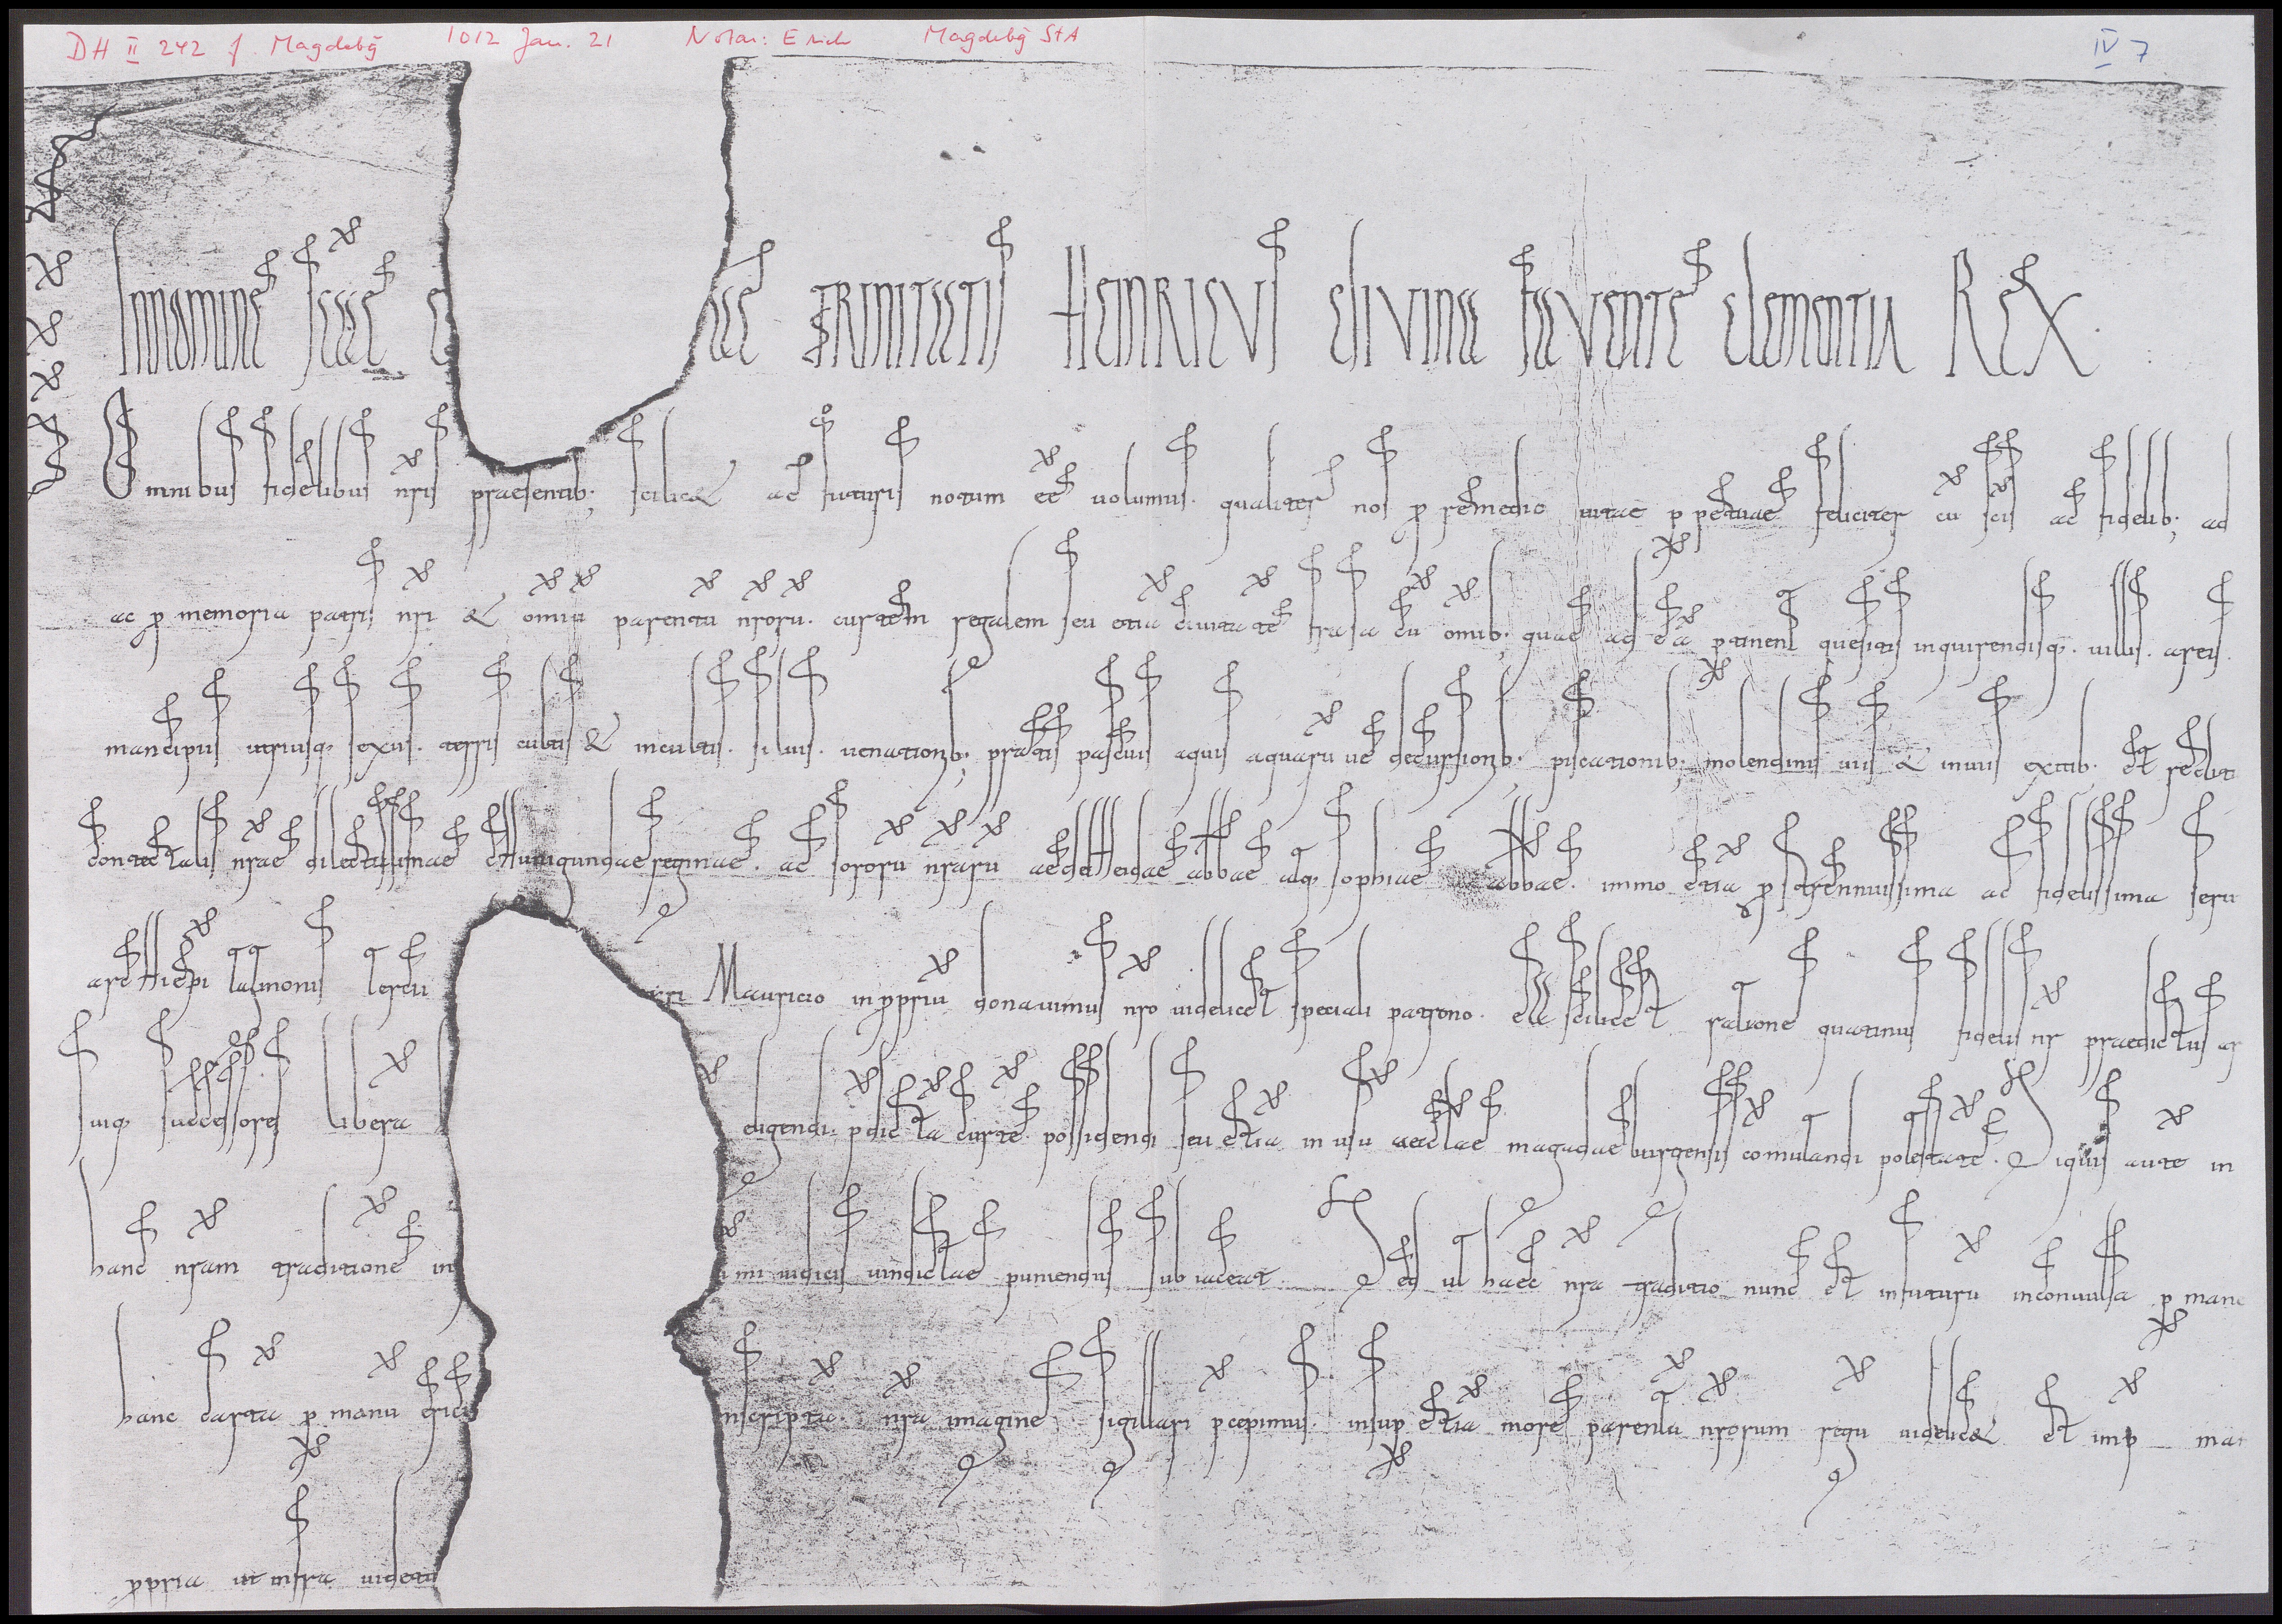 DH II 242 f. Magdebg 1012 Jan. 21 Notar: Erich Magdebg StA IV 7
In nomine sce e ae trinitatis Heinricus divina favente clementia Rex.
Omnibus fidelibus nris praesentib; scilic& ac futuris notum ee uolumus. qualiter nos p remedio uitae ppetuae feliciter cu scis ac fidelib; ad
ac p memoria patris nri & omiu parentu nroru. curtem regalem seu etia ciuitate frasa cu omib; quae ad ea ptinent quesitis inquirendisq. uillis. areis.
mancipiis utriusq; sexus. terris cultis & incultis. siluis. uenationib; pratis pascuis aquis aquaru ue decursionib. piscationib; molendinis uiis & inuiis exitib. et reditib
contectalis nrae dilectissimae cHunigundae reginae. ac sororu nraru aedelHeidae abbae atq; sophiae abbae. immo etia p strennuissima ac fidelissima serui
arcHiepi tagmonis sercu ri Mauricio in pprium donauimus nro uidelicet speciali patrono. ea scilicet ratione quatinus fidelis nr praedictus ar
suiq; successores libera eligendi. pdicta curte. possidendi seu etia in usu aecclae magadaeburgensis comutandi potestate. Siquis aute in
hanc nram traditione in imi iudicis uindictae puniendus subiaceat. Sed ut haec nra traditio nunc et in futuru inconuulsa p mane
hanc carta p manu erici inscripta. nra imagine sigillari pcepimus. insup etia more parentu nrorum regu uidelic& et imp man
ppria ut infra uidetu